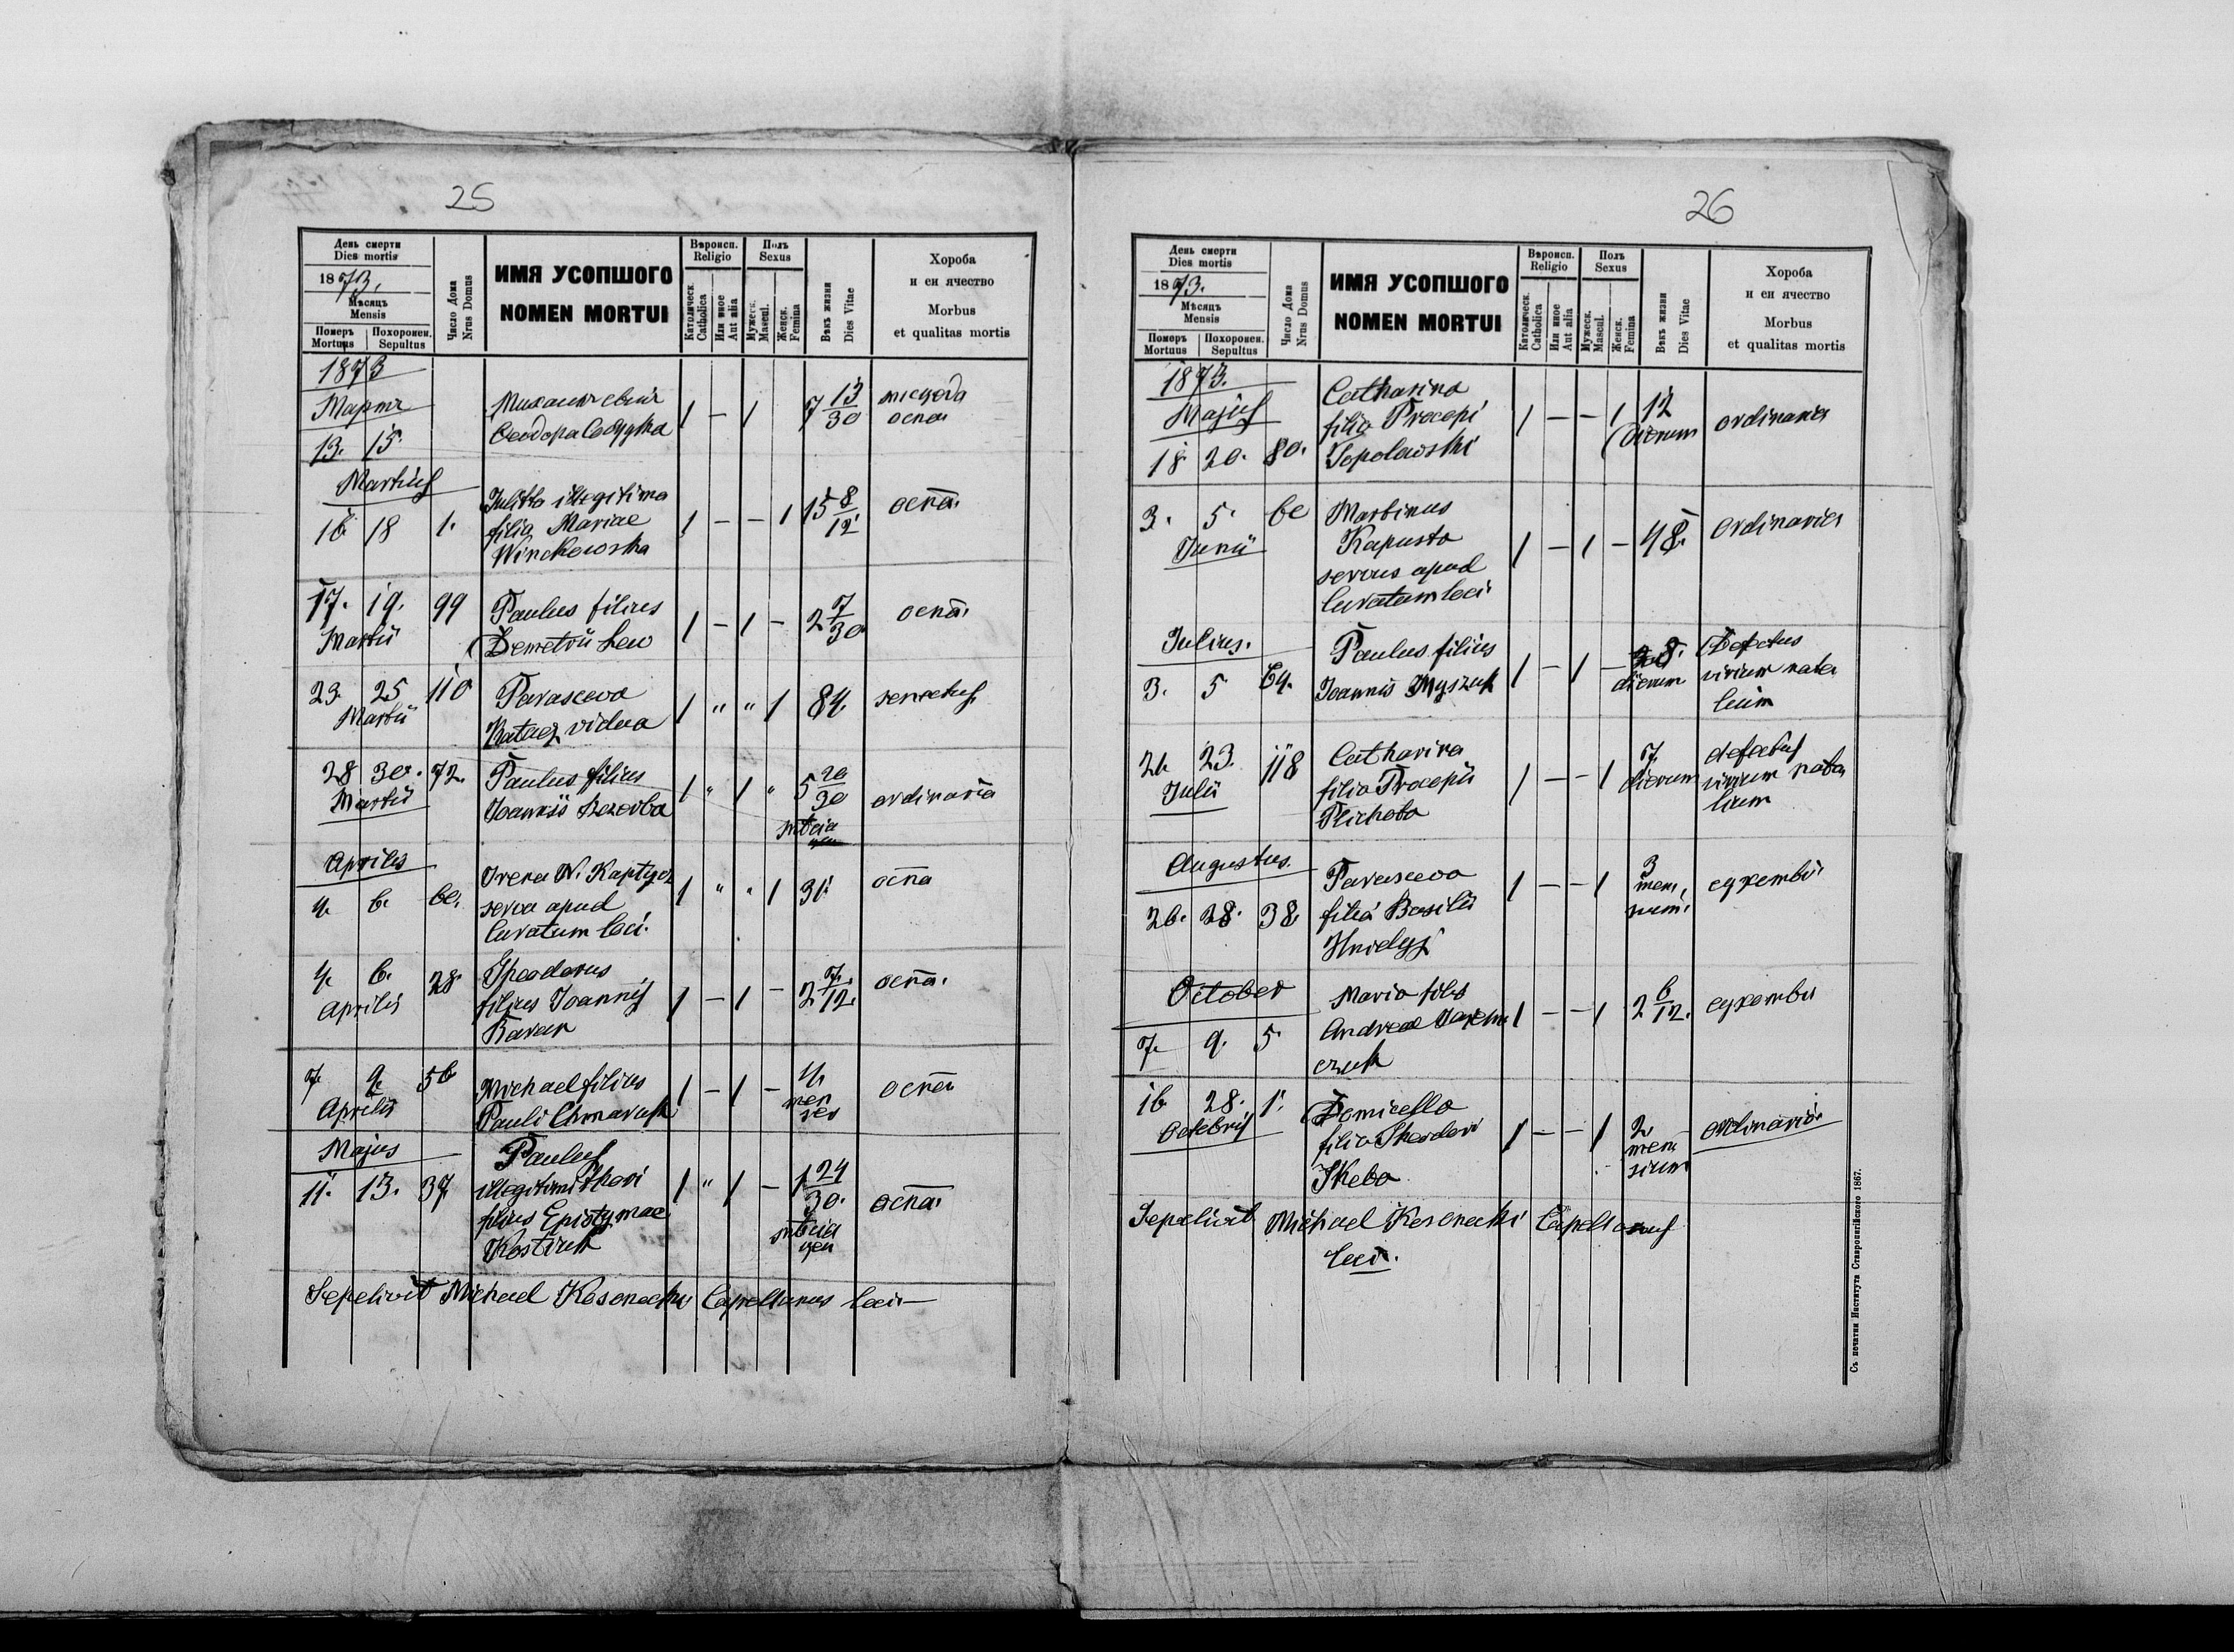 25
День смерти
Dies mortis
1873.
Мѣсяцъ
Mensis
Померъ Похоронен.
Mortuus Sepultus
Число Дома
Nrus Domus
ИМЯ УСОПШОГО
NOMEN MORTUI
Вѣроисп.
Religio
Католическ.
Catholica
Или иное
Aut alia
Полъ
Sexus
Мужеск.
Mascul.
Женск.
Femina
Вѣкъ жизни
Dies Vitae
Хороба
и еи ячество
Morbus
et qualitas mortis
1873
Мартъ
13. 15.
Ѳеодора
1 – 1 7 13/30
осна
Martius
16 18 1.
Julitta illegitima
filia Mariae
Winckowska
1 – – 1 15 8/12
оспа.
17. 19. 99
Martii
Paulus filius
Demetrii Lew
1 – 1 – 2 7/30
оспа.
23. 25 110
Martii
Parasceva
vidua
1 " " 1 84.
senectus
28 30. 72.
Martii
Paulus filius
Joannis
1 " 1 " 5 20/30
ordinaria
Aprilis
4. 6. 60.
Irena N.
serva apud
Curatum loci.
1 " " 1 31.
оспа
4. 6. 28.
Aprilis
Theodorus
filius Joannis
Baran
1 – 1 – 2 7/12.
оспа.
7. 9. 56
Aprilis
Michael filius
Pauli
1 – 1 – 4
men
ses
оспа
Majus
11. 13. 37
Paulus
illegitimi thori
filius Epistymae
Kostiuk
1 " 1 – 1 24/30.
оспа.
Sepelivit Michael Kosonocki Capellanus loci –
26
День смерти
Dies mortis
1873.
Мѣсяцъ
Mensis
Померъ Похоронен.
Mortuus Sepultus
Число Дома
Nrus Domus
ИМЯ УСОПШОГО
NOMEN MORTUI
Вѣроисп.
Religio
Католическ.
Catholica
Или иное
Aut alia
Полъ
Sexus
Мужеск.
Mascul.
Женск.
Femina
Вѣкъ жизни
Dies Vitae
Хороба
и еи ячество
Morbus
et qualitas mortis
1873.
Majus
18 20. 80.
Catharina
filia Procopi
Sopolowski
1 – – 1 12
dierum
ordinaria
3. 5. 60
Junii
Martinus
Kapusta
servus apud
Curatum loci.
1 – 1 – 48.
ordinaria
Julius.
3. 5 64.
Paulus filius
Joannis Myszuk
1 – 1 – 8.
dierum
Defectus
virium nata
lium
21. 23. 118
Julii
Catharina
filia Procopii
Plichota
1 – – 1 7
dierum
defectus
virium nata
lium
Augustus.
26. 28. 38.
Parasceva
filia Basilii
1 – – 1 3
men
sium.
сухоты
October
7. 9. 5.
Maria filia
Andreae
czuk
1 – – 1 2 6/12.
сухоты
16 28. 1.
Octobris
Domicella
filia Theodori
1 – – 1 2
men
sium
ordinaria
Sepelivit Michael Kosonocki Capellanus
loci.
Съ печатни Института Ставропигійского 1867.